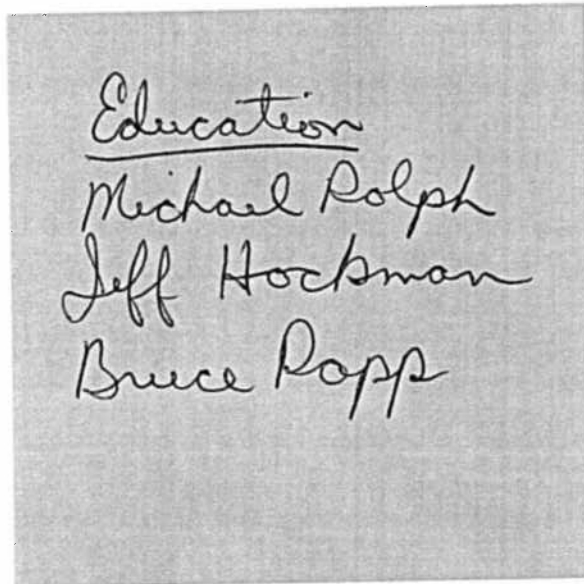 Education
Michael Rolph
Jeff Hockman
Bruce Rapp